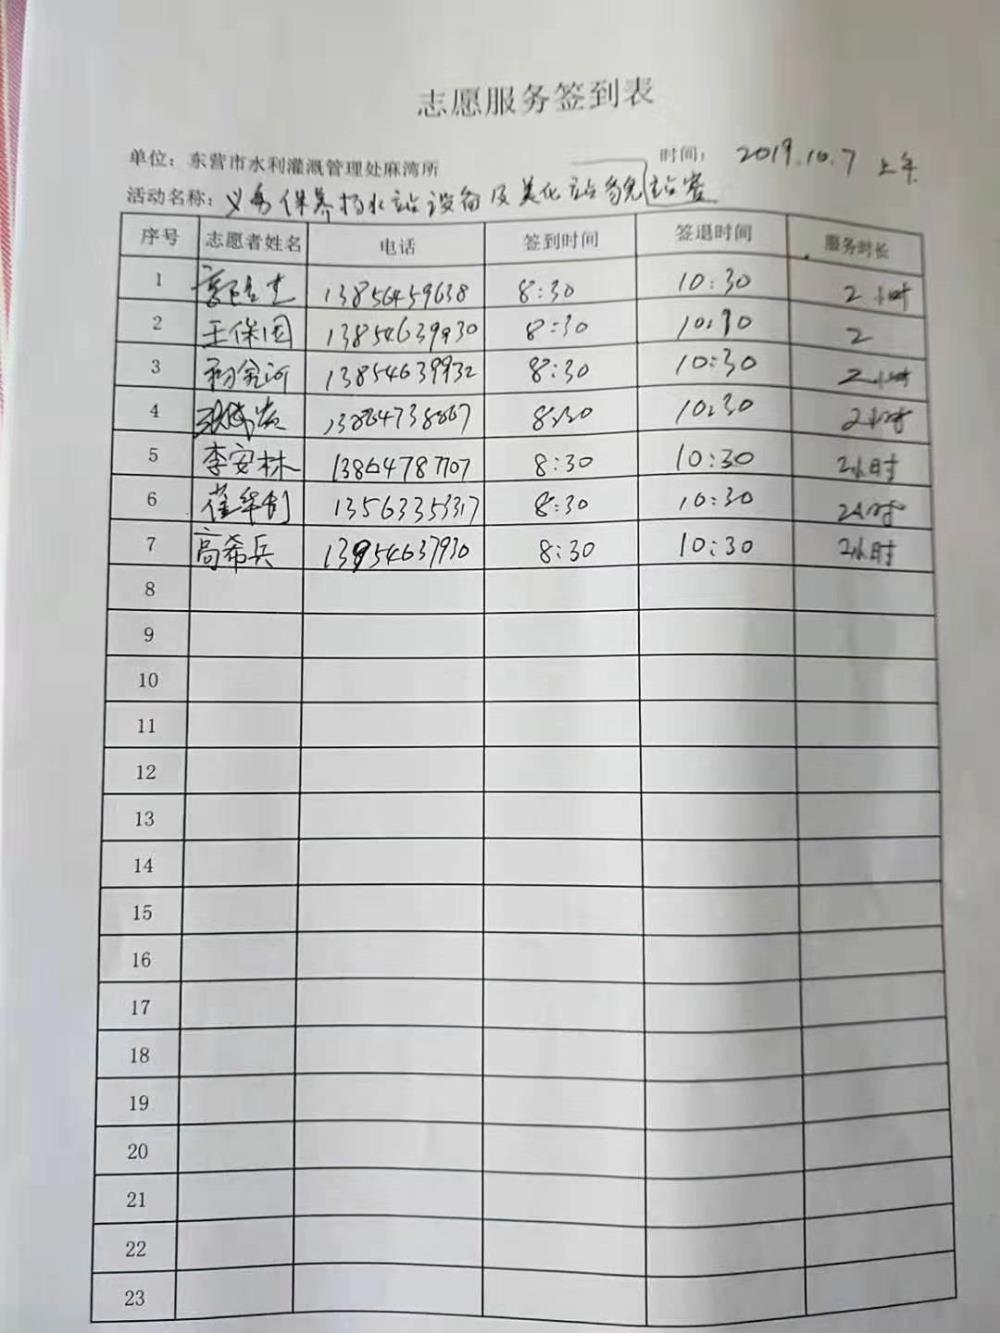 志愿服务签到表
单位：东营市水利灌溉管理处麻湾所 时间：2019.10.7 上午
活动名称：义务保养扬水站设备及美化站貌站容
序号 志愿者姓名 电话 签到时间 签退时间 服务时长
1 13856459638 8:30 10:30 2小时
2 王保国 13854639930 8:30 10:30 2
3 13854639932 8:30 10:30 2小时
4 13864738667 8:30 10:30 2小时
5 李安林 13864787707 8:30 10:30 2小时
6 崔华制 13563355317 8:30 10:30 2小时
7 高希兵 13954637930 8:30 10:30 2小时
8
9
10
11
12
13
14
15
16
17
18
19
20
21
22
23